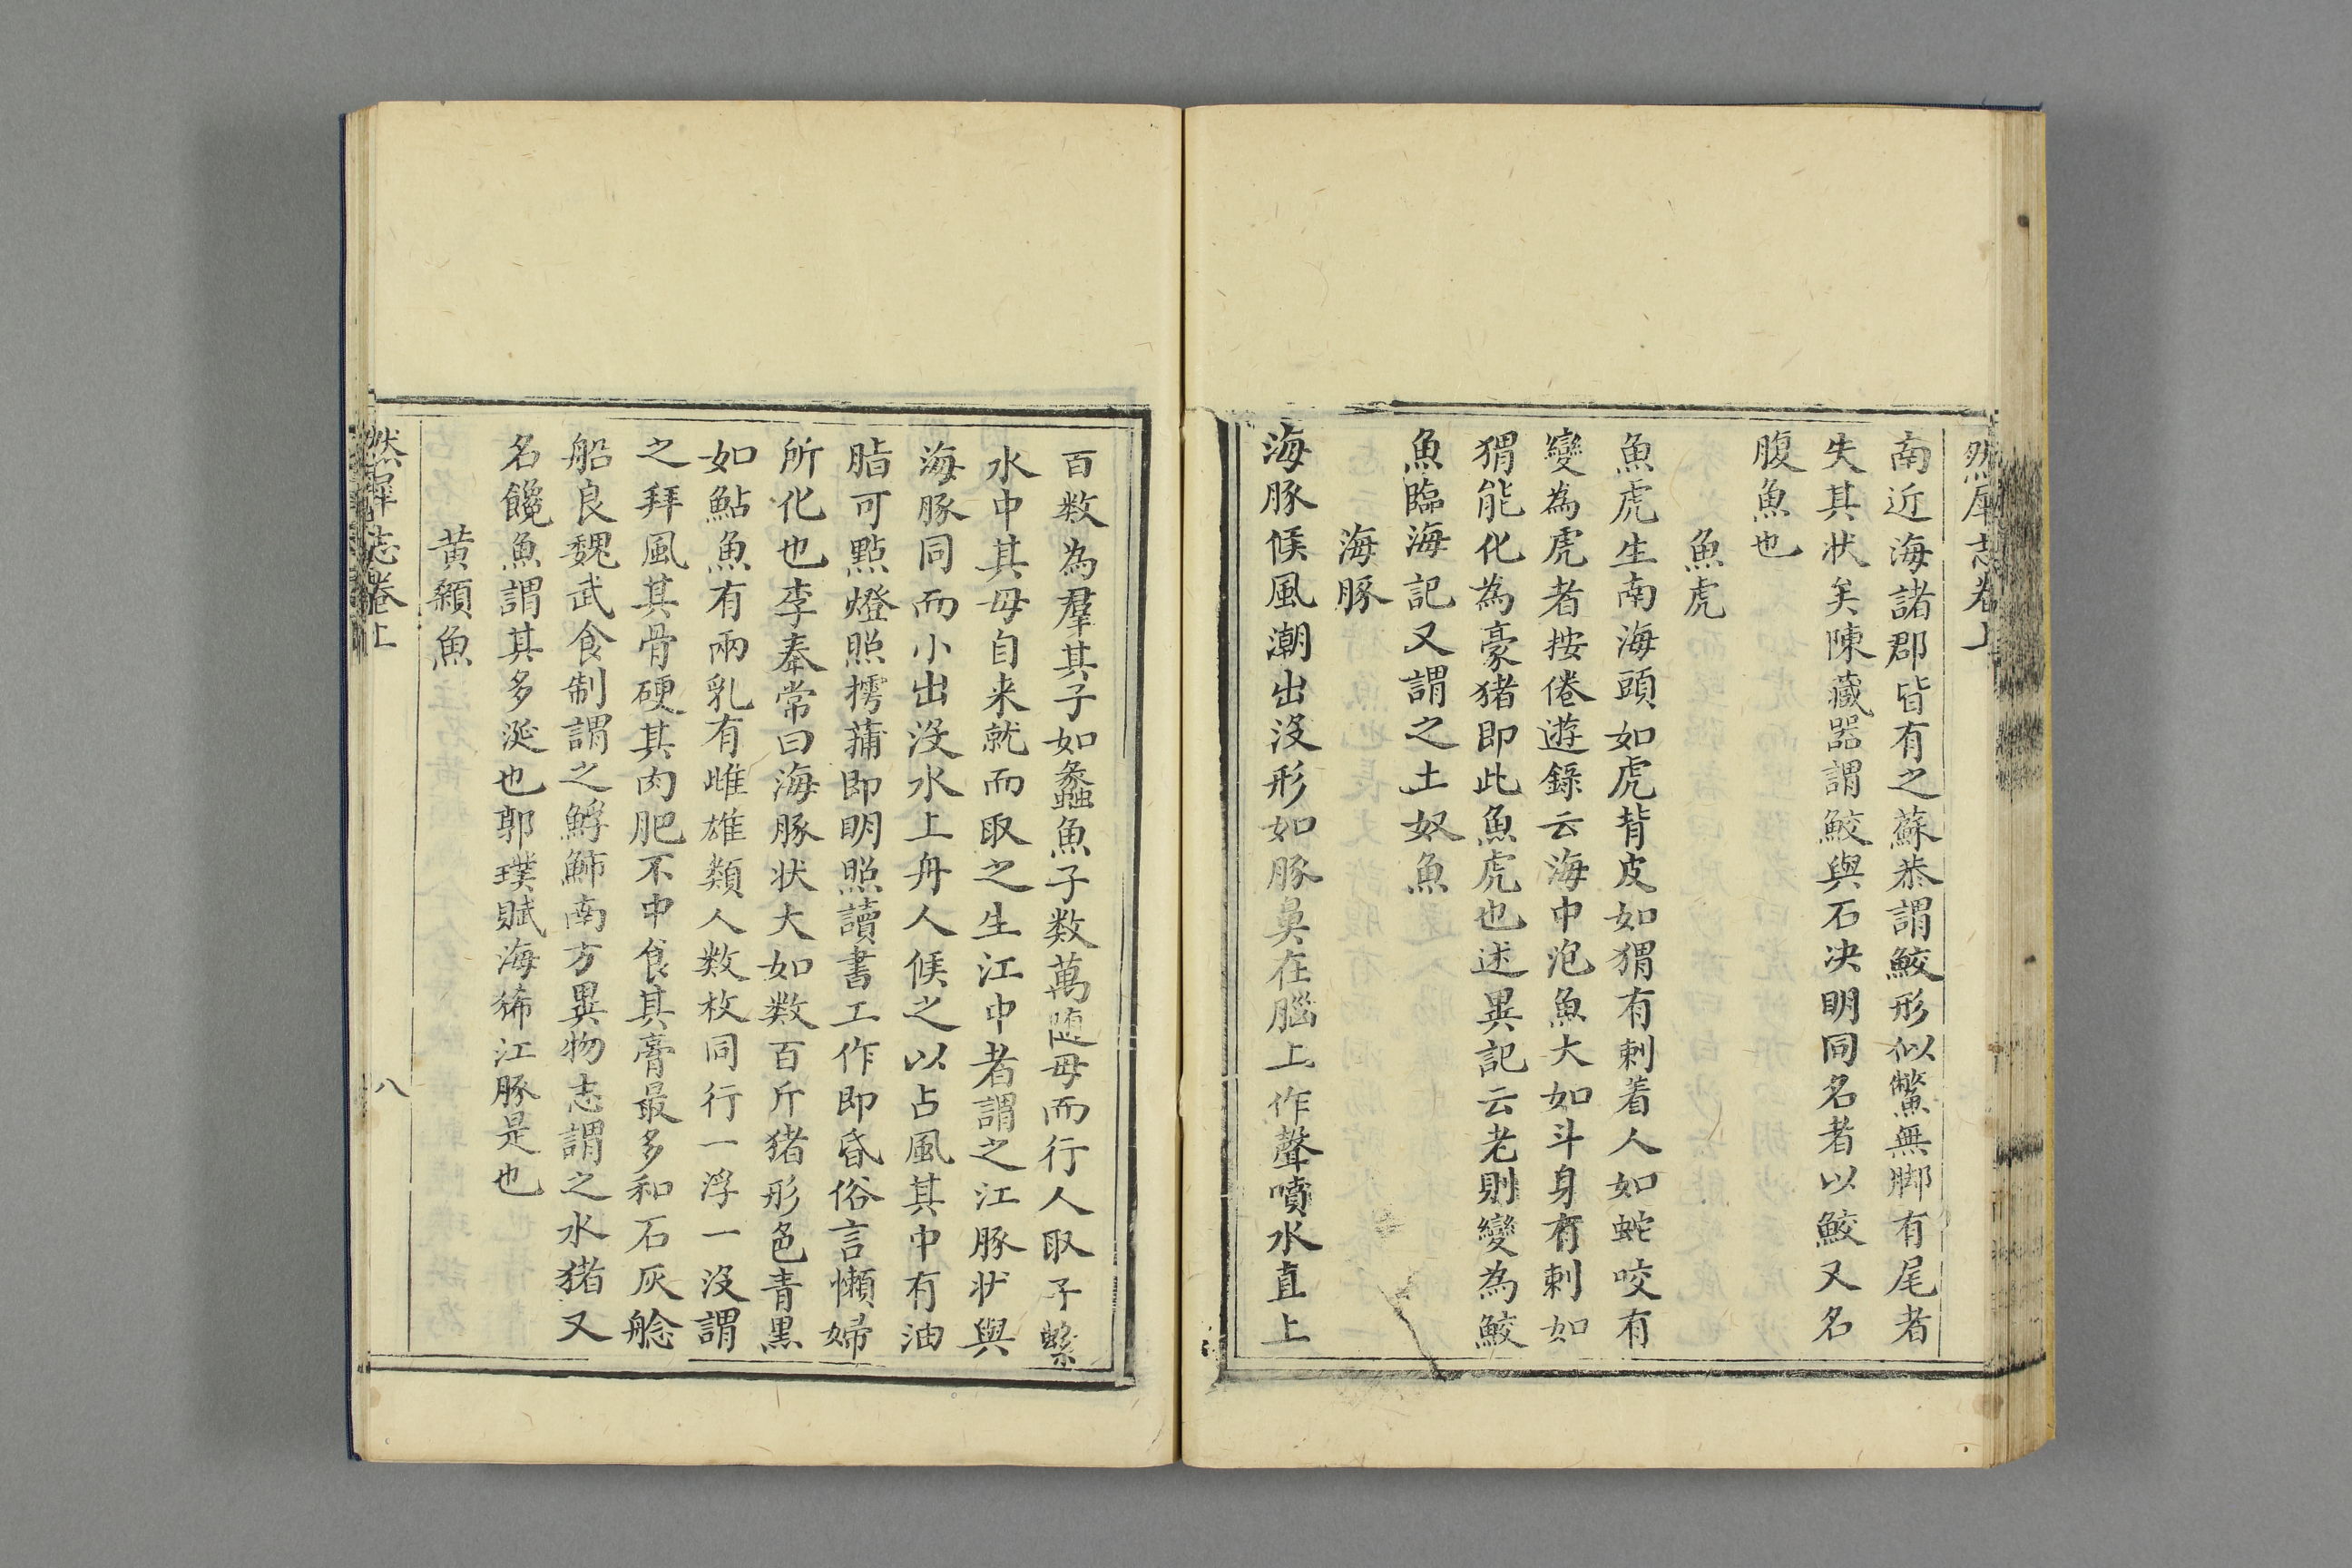 然犀志卷上
南近海諸郡皆有之蘇恭謂鮫形似鱉無脚有尾者
失其状矣陳藏器謂鮫與石决明同名者以鮫又名
腹魚也
魚虎
魚虎生南海頭如虎背皮如猬有刺着人如蛇咬有
變為虎者按倦遊錄云海中泡魚大如斗身有刺如
猬能化為豪猪即此魚虎也述異記云老則變為鮫
魚臨海記又謂之土奴魚
海豚
海豚候風潮出沒形如豚鼻在腦上作聲噴水直上
百数為羣其子如蠡魚子数萬随母而行人取子繫
水中其母自来就而取之生江中者謂之江豚状與
海豚同而小出沒水上舟人候之以占風其中有油
脂可點燈照摴蒱即明照讀書工作即昏俗言懶婦
所化也李奉常曰海豚状大如数百斤猪形色青黒
如鮎魚有兩乳有雌雄類人数枚同行一浮一沒謂
之拜風其骨硬其肉肥不中食其膏最多和石灰艌
船良魏武食制謂之䱐䰽南方異物志謂之水猪又
名饞魚謂其多涎也郭璞賦海狶江豚是也
黄顙魚
然犀志卷上
八